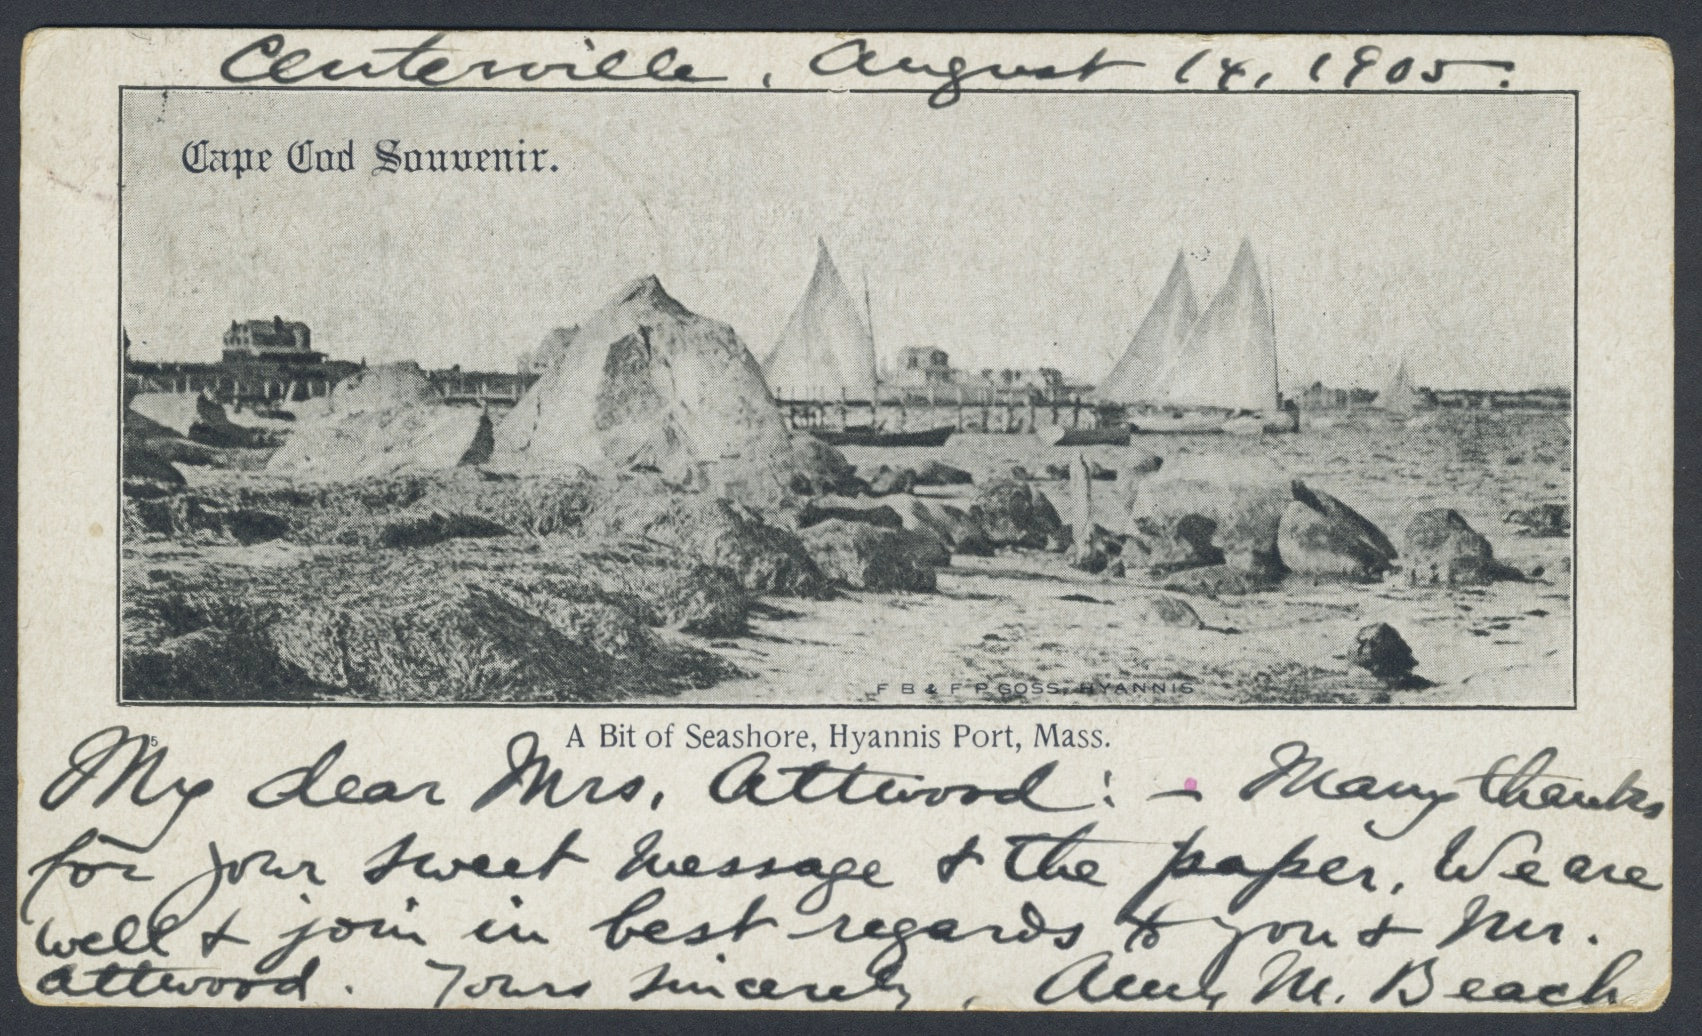 Centerville, August 14, 1905.
Cape Cod Souvenir.
F B & F P GOSS, HYANNIS
5
A Bit of Seashore, Hyannis Port, Mass.
My dear Mrs. Attwood: - Many thanks
for your sweet message & the paper. We are
well & join in best regards to you & Mr.
Attwood. Yours sincerely, Amy M. Beach